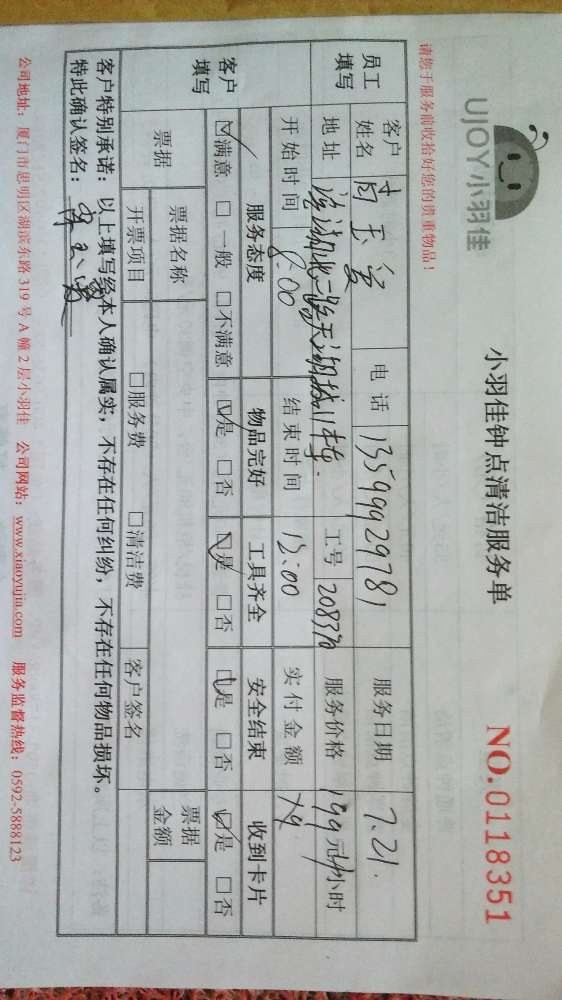 UJOY小羽佳
小羽佳钟点清洁服务单
NO.0118351
请您于服务前收拾好您的贵重物品！
员工填写 客户姓名 电话 13599929781 服务日期 7.21.
地址 工号 208370 服务价格 199元/小时
开始时间 8:00 结束时间 12:00 实付金额
客户填写 服务态度 物品完好 工具齐全 安全结束 收到卡片
☑满意 □一般 □不满意 ☑是 □否 ☑是 □否 ☑是 □否 ☑是 □否
票据 票据名称 票据金额
开票项目 □服务费 □清洁费 客户签名
客户特别承诺：以上填写经本人确认属实，不存在任何纠纷，不存在任何物品损坏。
特此确认签名：
公司地址：厦门市思明区湖滨东路 319 号 A 幢 2 层小羽佳 公司网站：www.xiaoyujia.com 服务监督热线：0592-5888123